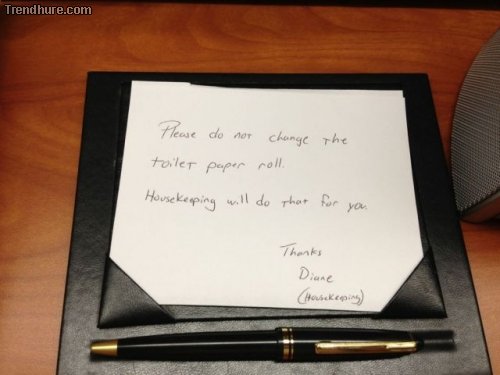 Trendhure.com
Please do not change the
toilet paper roll.
Housekeeping will do that for you.
Thanks
Diane
(Housekeeping)